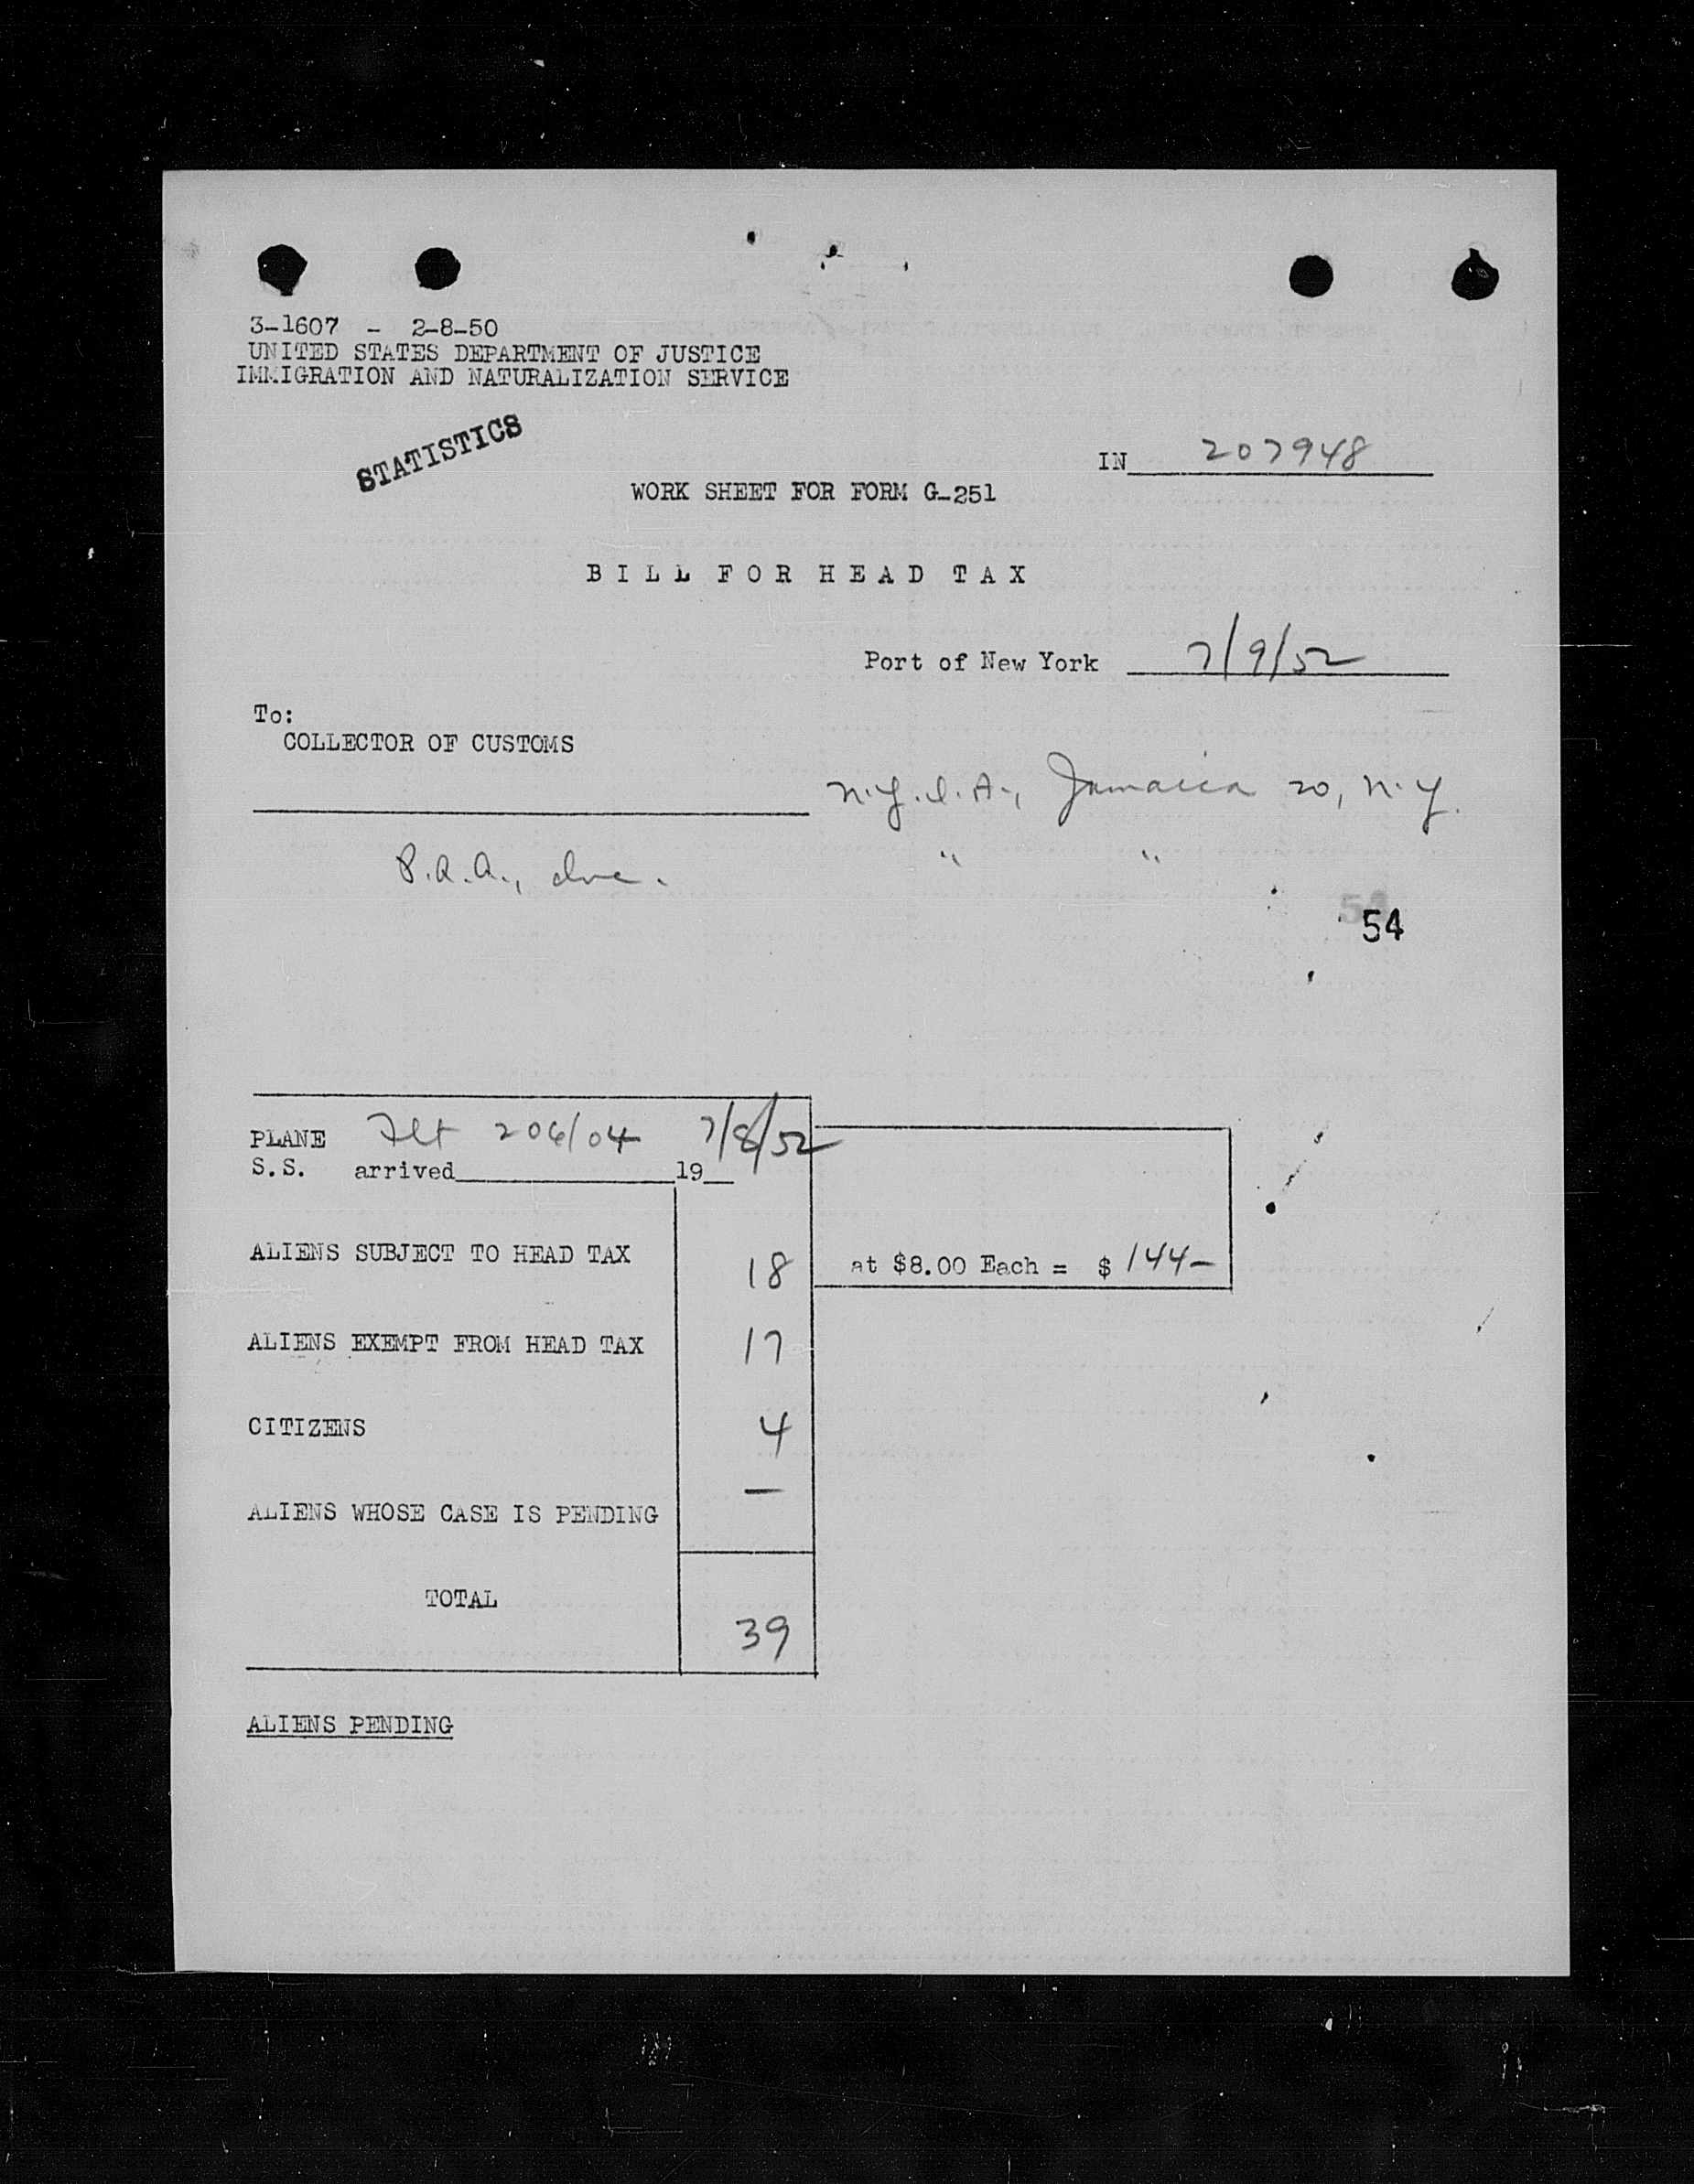 3-1607 - 2-8-50
UNITED STATES DEPARTMENT OF JUSTICE
IMMIGRATION AND NATURALIZATION SERVICE
STATISTICS
IN 207948
WORK SHEET FOR FORM G-251
BILL FOR HEAD TAX
Port of New York 7/9/52
To:
COLLECTOR OF CUSTOMS
N.Y.I.A., Jamaica 20, N.Y.
P.A.A., Inc. " "
54
PLANE Flt 206/04 7/8/52
S.S. arrived 19
ALIENS SUBJECT TO HEAD TAX 18 at $8.00 Each = $ 144-
ALIENS EXEMPT FROM HEAD TAX 17
CITIZENS 4
ALIENS WHOSE CASE IS PENDING —
TOTAL 39
ALIENS PENDING